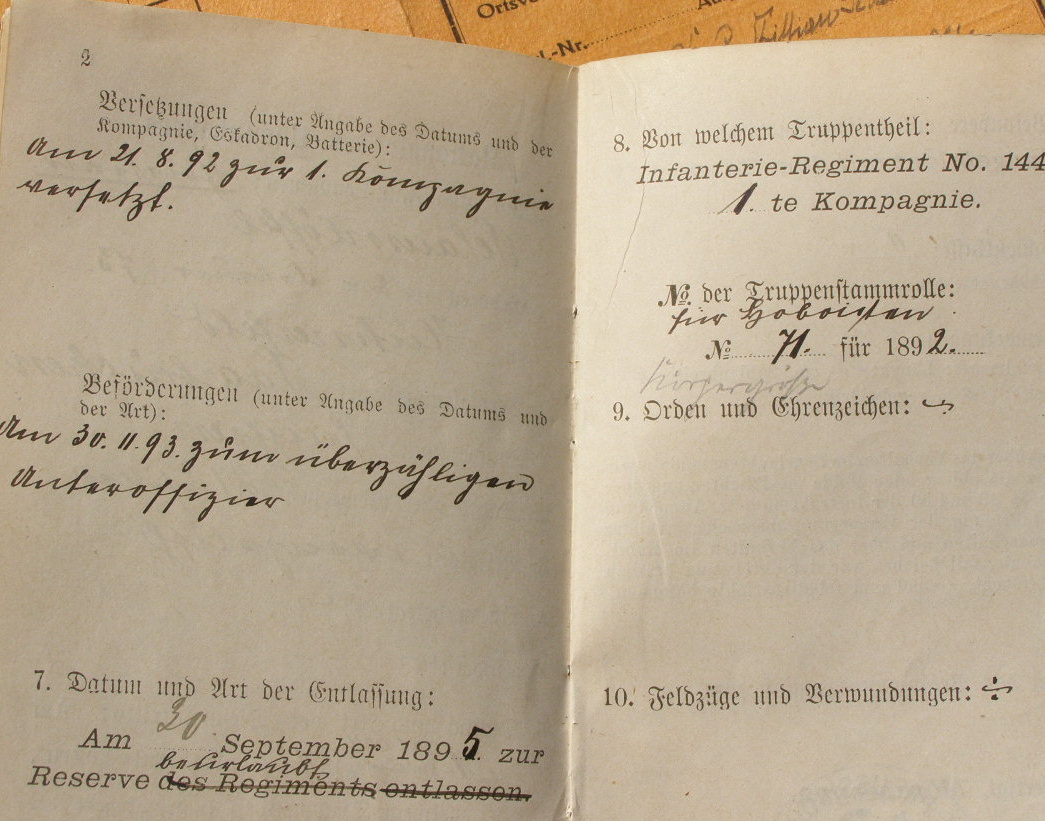 Ortsve
-Nr.
2
Versetzungen (unter Angabe des Datums und der
Kompagnie, Eskadron, Batterie):
Am 21. 8. 92 zur 1. Kompagnie
versetzt.
Beförderungen (unter Angabe des Datums und
der Art):
Am 30. 11. 93. zum überzähligen
Unteroffizier
7. Datum und Art der Entlassung:
30
Am September 1895. zur
beurlaubt
Reserve des Regiments entlassen.
8. Von welchem Truppentheil:
Infanterie-Regiment No. 144
1. te Kompagnie.
No. der Truppenstammrolle:
für Hoboisten
No 71. für 1892.
Körpergröße
9. Orden und Ehrenzeichen:
10. Feldzüge und Verwundungen: